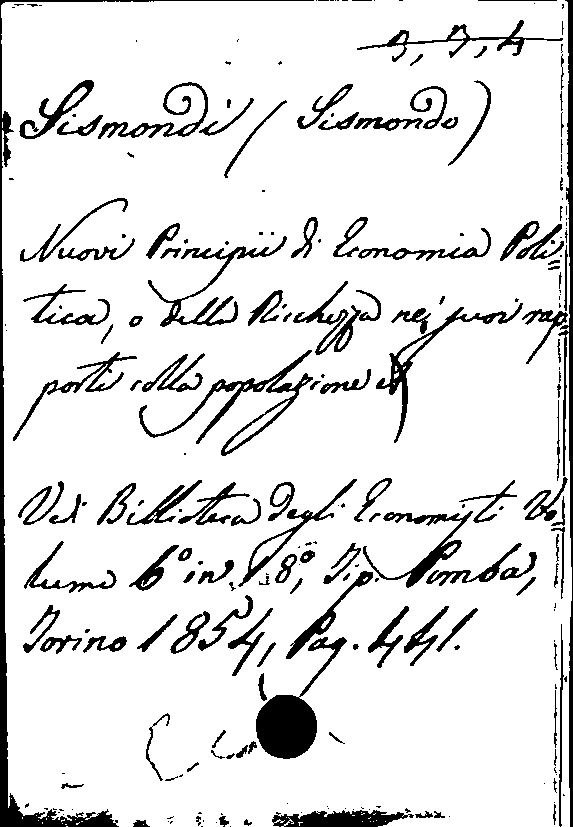 3, 3, 4
Sismondi (Sismondo)
Nuovi Principii di Economia Poli=
tica, o della Ricchezza ne' suoi rap=
porti colla popolazione
Ved. Biblioteca degli Economisti Vo=
lume 6° in 8°, Tip. Pomba,
Torino 1854, Pag. 441.